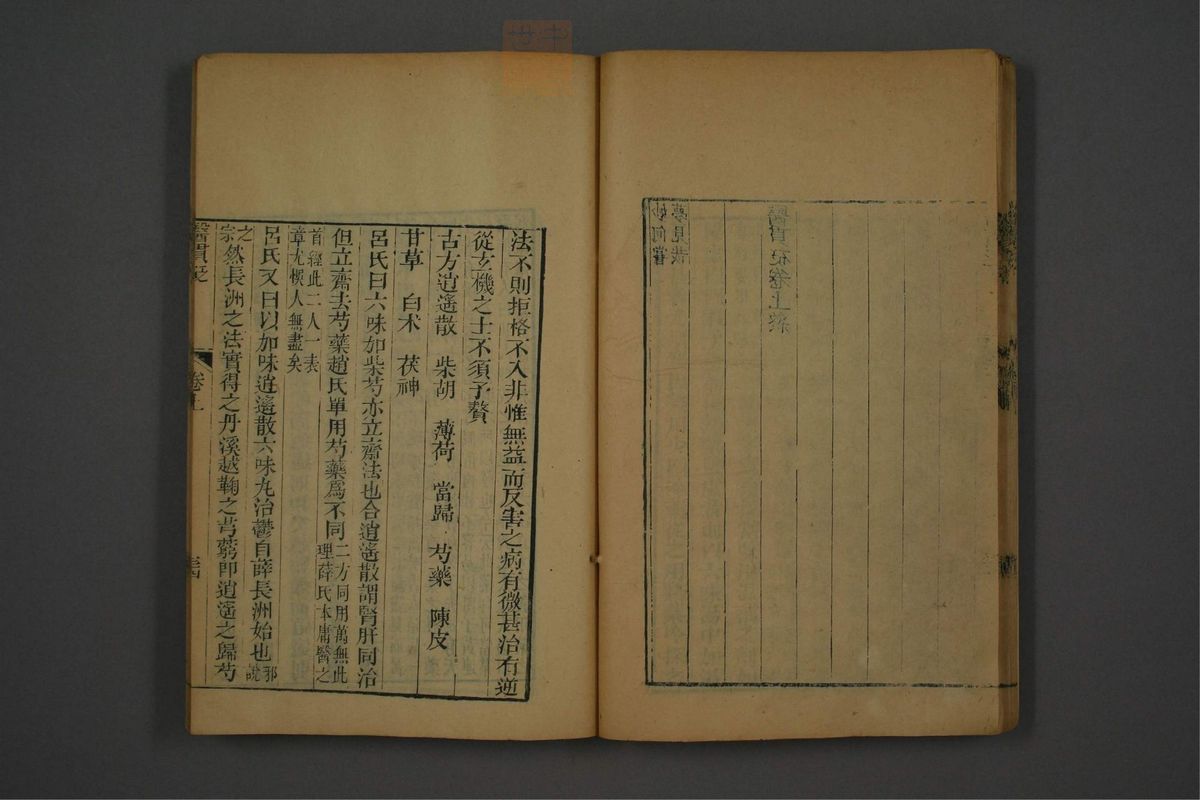 法不則拒格不入非惟無益而反害之病有微甚治有逆
從玄機之士不須予贅
古方逍遙散　柴胡　薄荷　當歸　芍藥　陳皮
甘草　白术　茯神
呂氏曰六味加柴芍亦立齋法也合逍遙散謂腎肝同治
但立齋去芍藥趙氏單用芍藥爲不同二方同用萬無此理薛氏本庸醫之
首經此二人一表章尤悞人無盡矣
呂氏又曰以加味逍遙散六味丸治鬱自薛長洲始也邪說
之宗然長洲之法實得之丹溪越鞠之芎藭卽逍遙之歸芍
醫貫砭　卷上